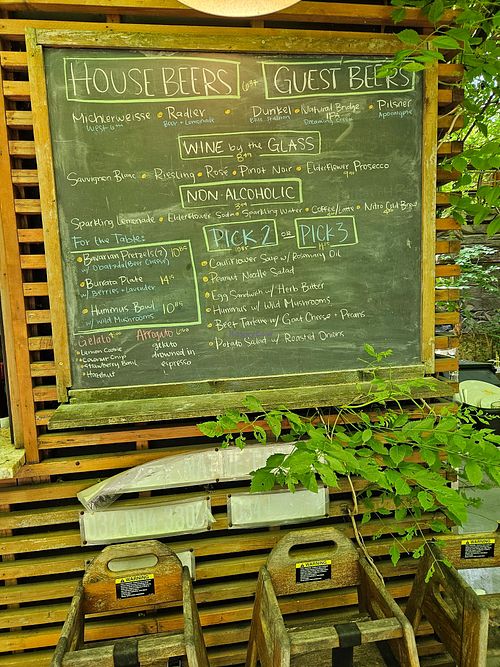 HOUSE BEERS GUEST BEERS
Michlerweisse • Radler Dunkel • Natural Bridge • Pilsner
West 6th Beer + Lemonade IPA Apocalypse
WINE by the GLASS
Sauvignon Blanc • Riesling • Rosé • Pinot Noir • Elderflower Prosecco
NON-ALCOHOLIC
Sparkling Lemonade • Elderflower Soda • Sparkling Water • Coffee/Latte • Nitro Cold Brew
For the Table:
PICK 2 or PICK 3
• Bavarian Pretzels (2)
w/ Obatzda (Beer Cheese)
• Burrata Plate
w/ Berries + Lavender
• Hummus Bowl
w/ Wild Mushrooms
• Cauliflower Soup w/ Rosemary Oil
• Peanut Noodle Salad
• Egg Sandwich w/ Herb Butter
• Hummus w/ Wild Mushrooms
• Beet Tartare w/ Goat Cheese + Pecans
• Potato Salad w/ Roasted Onions
Gelato
• Lemon Cookie
• Coconut Chip
• Strawberry Basil
• Hazelnut
Affogato
gelato
drowned in
espresso
WARNING
WARNING
WARNING